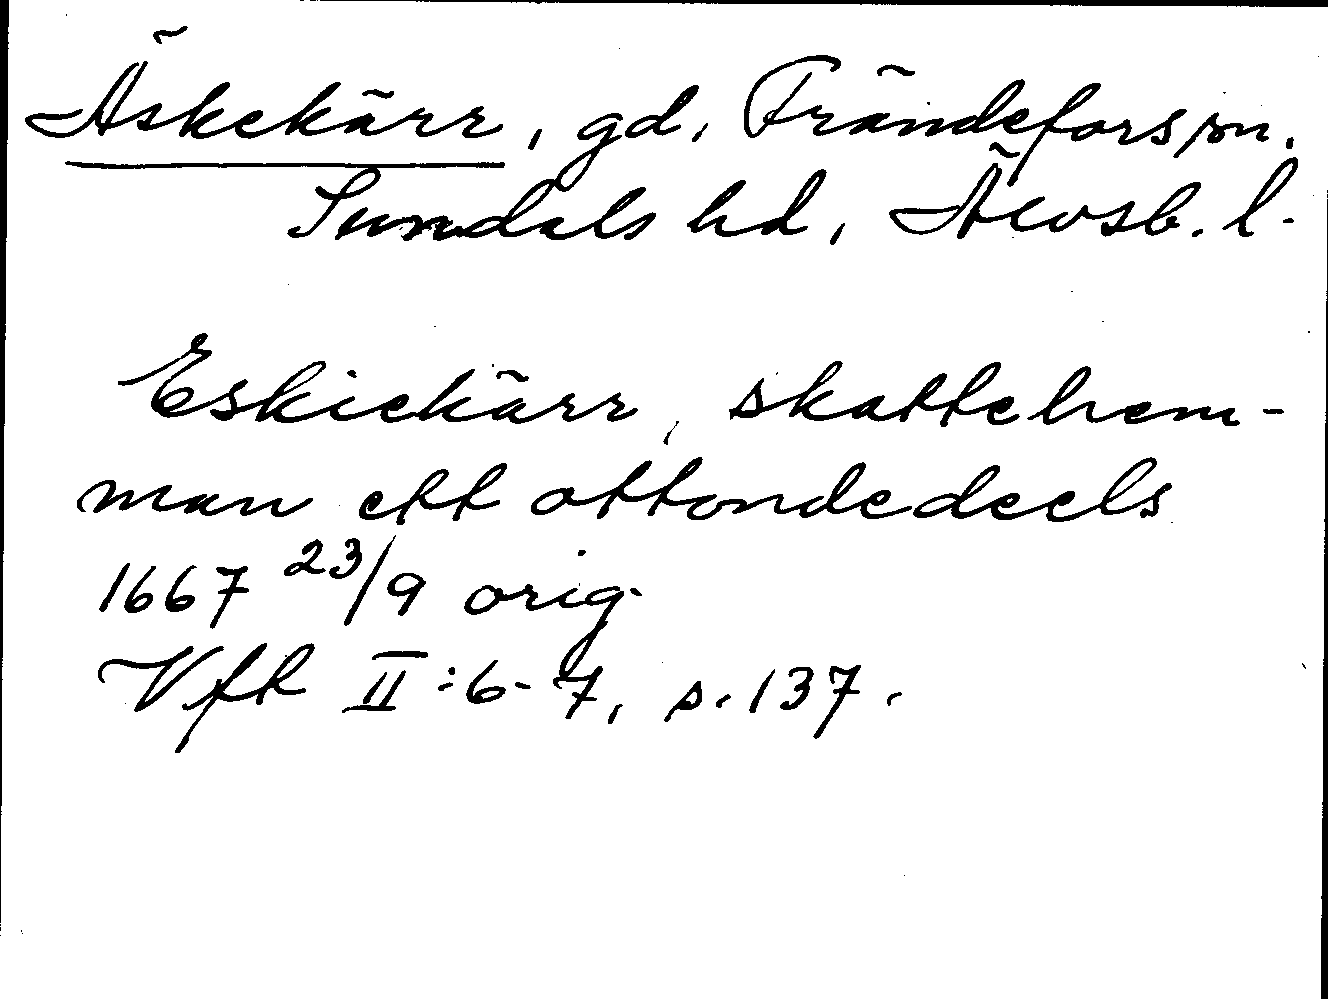 Äskekärr, gd, Frändefors sn.
Sundals hd, Älvsb. l.
Eskiekärr, skattehem-
man ett ottondedeels
1667 23/9 orig.
Vfft II:6-7, s. 137.